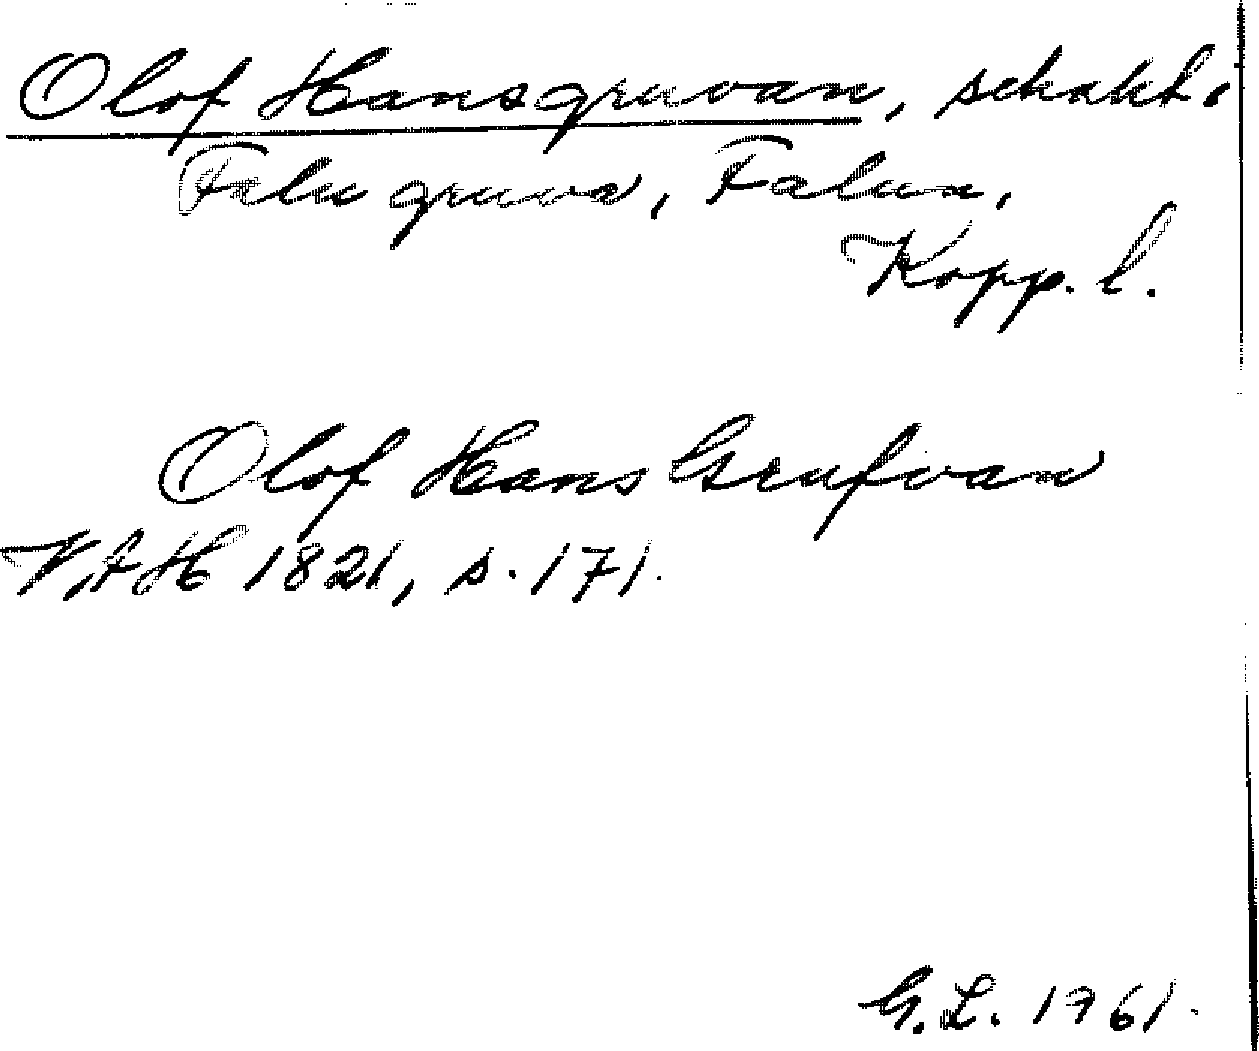 Olof Hansgruvan, schakt.
Falu gruva, Falun,
Kopp. l.
Olof Hans Grufvan
VAH 1821, s. 171.
G.L. 1961.